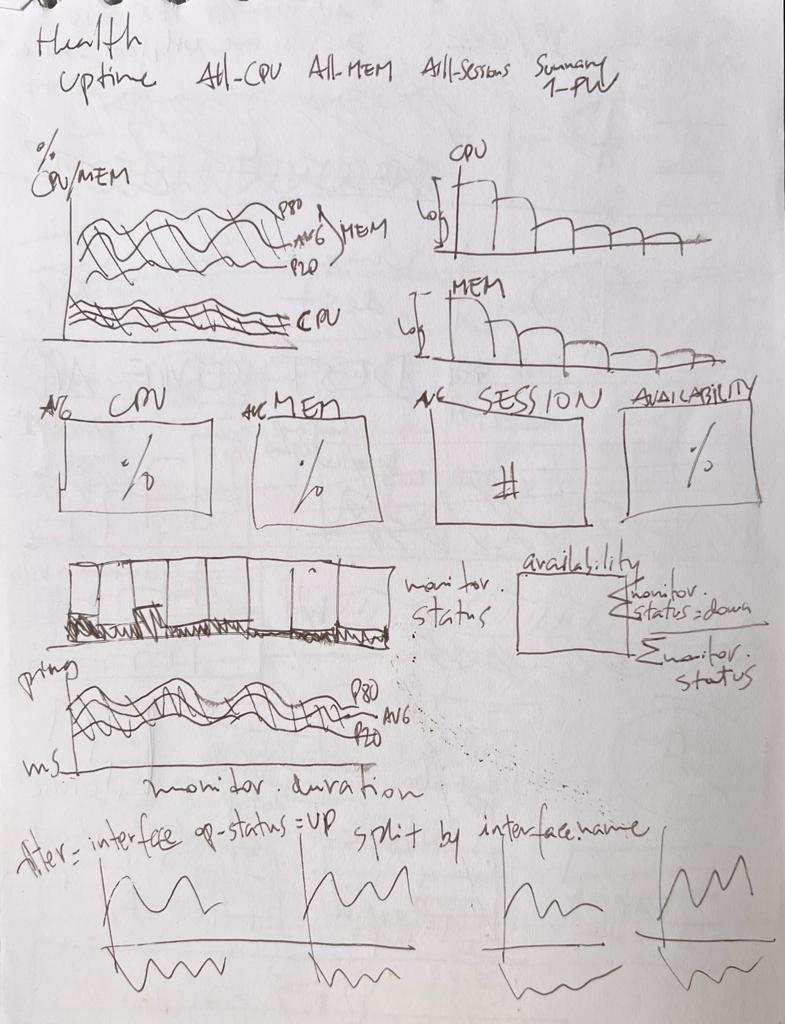 Health
Uptime All-CPU All-MEM All-Sessions Summary
%
CPU/MEM
P80
AVG
P20
MEM
CPU
CPU
MEM
AVG CPU
%
AVG MEM
%
AVG SESSION
#
AVAILABILITY
%
monitor.
status
availability
Σmonitor.
status=down
Σmonitor.
status
ping
ms
P80
AVG
P20
monitor.duration
filter= interface op-status=UP split by interface.name